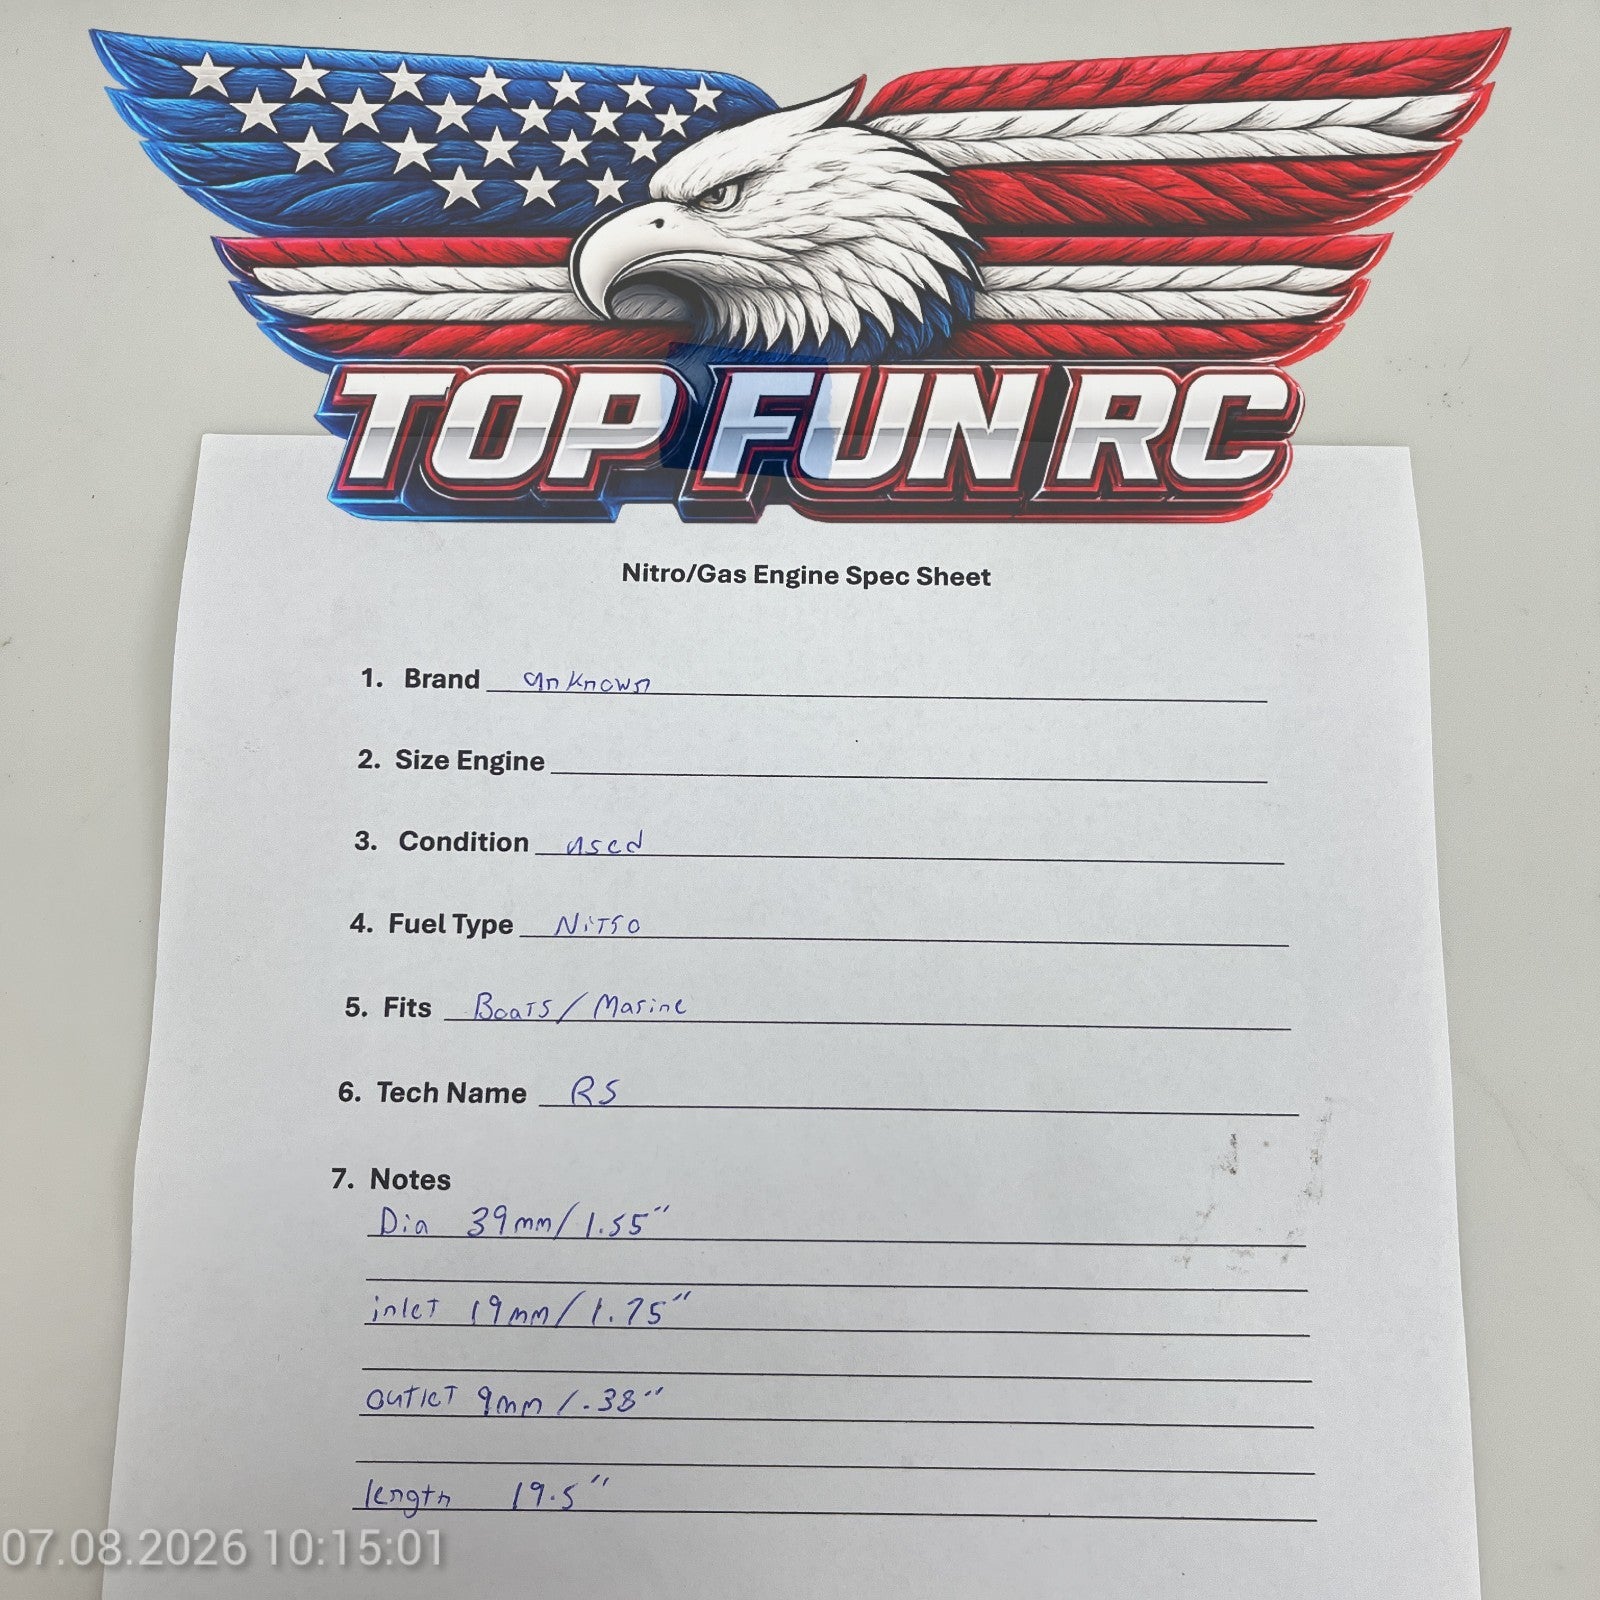 TOP FUN RC
Nitro/Gas Engine Spec Sheet
1. Brand unknown
2. Size Engine
3. Condition used
4. Fuel Type Nitro
5. Fits Boats / Marine
6. Tech Name RS
7. Notes
Dia 39mm/1.55"
inlet 19mm/1.75"
outlet 9mm /.38"
length 19.5"
07.08.2026 10:15:01